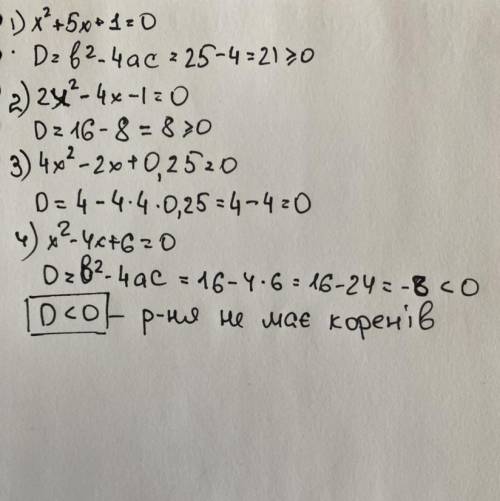 1) x² + 5x + 1 = 0
D = в² - 4ac = 25 - 4 = 21 ≥ 0
2) 2x² - 4x - 1 = 0
D = 16 - 8 = 8 ≥ 0
3) 4x² - 2x + 0,25 = 0
D = 4 - 4 · 4 · 0,25 = 4 - 4 = 0
4) x² - 4x + 6 = 0
D = в² - 4ac = 16 - 4 · 6 = 16 - 24 = -8 < 0
D < 0 - р-ня не має коренів